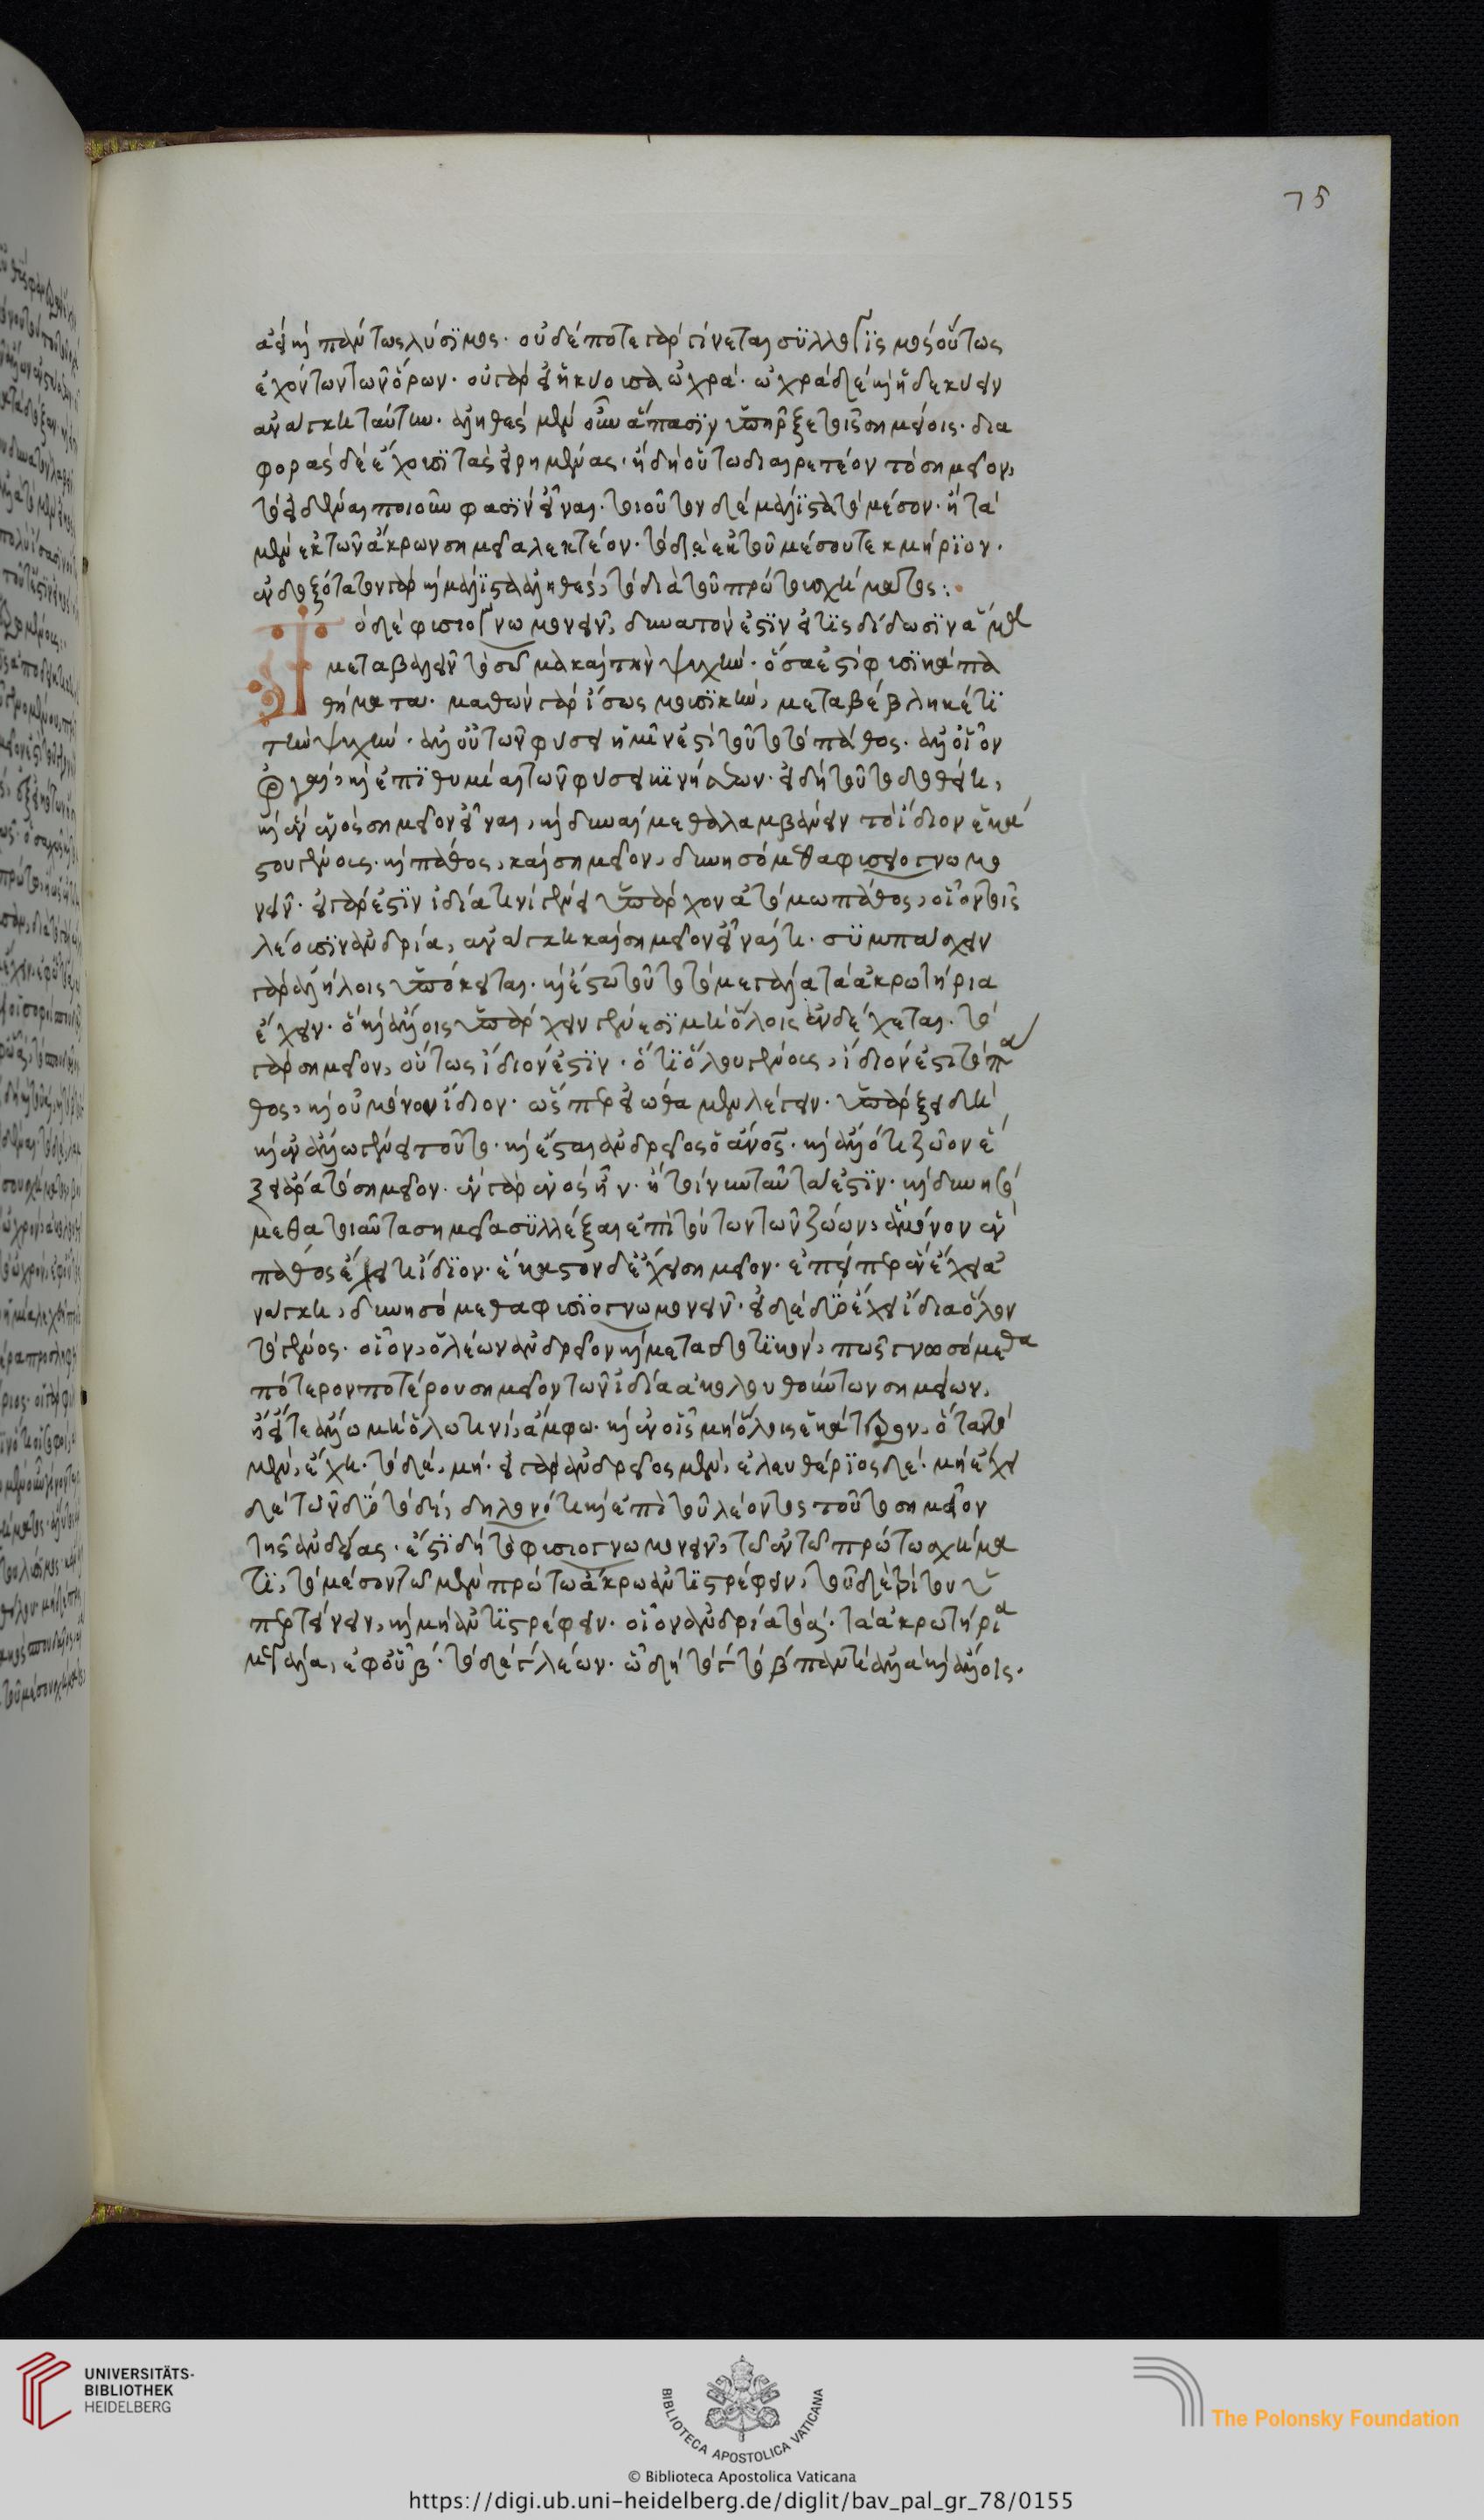 ἀεὶ καὶ πάντως λύσιμος· οὐδέποτε γὰρ γίνεται συλλογισμὸς οὕτως
ἐχόντων τῶν ὅρων· οὐ γὰρ εἰ ἡ κύουσα ὠχρά· ὠχρὰ δὲ καὶ ἥδε κύειν
ἀνάγκη ταύτην· ἀληθὲς μὲν οὖν ἅπασιν ὑπῆρξε τοῖς σημείοις· δια
φορὰς δὲ ἔχουσι τὰς εἰρημένας· ἢ δὴ οὕτω διαιρετέον τὸ σημεῖον,
τὸ εἰδέναι ποιοῦν φασὶν εἶναι· τοιοῦτον δὲ μάλιστα τὸ μέσον· ἢ τὰ
μὲν ἐκ τῶν ἄκρων σημεῖα λεκτέον· τὸ δὲ ἐκ τοῦ μέσου τεκμήριον·
ἐνδοξότατον γὰρ καὶ μάλιστα ἀληθές, τὸ διὰ τοῦ πρώτου σχήματος:
Τὸ δὲ φυσιογνωμονεῖν, δυνατόν ἐστιν εἴ τις δίδωσιν ἅμα
μεταβάλλειν τὸ σῶμα καὶ τὴν ψυχήν· ὅσα ἐστὶ φυσικὰ πα
θήματα· μαθὼν γὰρ ἴσως μουσικήν, μεταβέβληκέ τι
τὴν ψυχήν· ἀλλ' οὐ τῶν φύσει ἡμῖν ἐστὶ τοῦτο τὸ πάθος· ἀλλ' οἷον
ὀργαί, καὶ ἐπιθυμίαι τῶν φύσει κινήσεων· εἰ δὴ τοῦτο δοθείη,
καὶ ἓν ἑνὸς σημεῖον εἶναι, καὶ δυναίμεθα λαμβάνειν τὸ ἴδιον ἑκά
στου γένους· καὶ πάθος, καὶ σημεῖον, δυνησόμεθα φυσιογνωμο
νεῖν· εἰ γάρ ἐστιν ἰδίᾳ τινὶ γένει ὑπάρχον ἀτόμῳ πάθος, οἷον τοῖς
λέουσιν ἀνδρία, ἀνάγκη καὶ σημεῖον εἶναί τι· συμπάσχειν
γὰρ ἀλλήλοις ὑπόκειται· καὶ ἔστω τοῦτο τὸ μεγάλα τὰ ἀκρωτήρια
ἔχειν· ὃ καὶ ἄλλοις ὑπάρχειν γένεσι μὴ ὅλοις ἐνδέχεται· τὸ
γὰρ σημεῖον, οὕτως ἴδιόν ἐστιν· ὅτι ὅλου γένους, ἴδιόν ἐστι τὸ πά
θος, καὶ οὐ μόνου ἴδιον· ὥσπερ εἰώθαμεν λέγειν· ὑπάρξει δὴ
καὶ ἐν ἄλλῳ γένει τοῦτο· καὶ ἔσται ἀνδρεῖος ὁ ἄνος· καὶ ἄλλό τι ζῷον ἕ
ξει ἄρα τὸ σημεῖον· ἓν γὰρ ἑνὸς ἦν· εἰ τοίνυν ταῦτά ἐστιν· καὶ δυνησό
μεθα τοιαῦτα σημεῖα συλλέξαι ἐπὶ τούτων τῶν ζῴων, ἃ μόνον ἓν
πάθος ἔχει τι ἴδιον· ἕκαστον δὲ ἔχει σημεῖον· ἐπείπερ ἓν ἔχει ἀ
νάγκη, δυνησόμεθα φυσιογνωμονεῖν· εἰ δὲ δύο ἔχει ἴδια ὅλον
τὸ γένος· οἷον, ὁ λέων ἀνδρεῖον καὶ μεταδοτικόν, πῶς γνωσόμεθα
πότερον ποτέρου σημεῖον τῶν ἰδίᾳ ἀκολουθούντων σημείων,
ἢ εἴτε ἄλλῳ μὴ ὅλῳ τινί, ἄμφω· καὶ ἐν οἷς μὴ ὅλοις ἑκάτερον, ὅταν τὸ
μέν, ἔχῃ· τὸ δέ, μή· εἰ γὰρ ἀνδρεῖος μέν, ἐλευθέριος δέ· μὴ ἔχει
δὲ τῶν δύο τὸ δί, δῆλον ὅτι καὶ ἐπὶ τοῦ λέοντος τοῦτο σημεῖον
τῆς ἀνδρείας· ἔστι δὴ τὸ φυσιογνωμονεῖν, τῷ ἐν τῷ πρώτῳ σχήμα
τι, τὸ μέσον τῷ μὲν πρώτῳ ἄκρῳ ἀντιστρέφειν, τοῦ δὲ τρίτου ὑ
περτείνειν, καὶ μὴ ἀντιστρέφειν· οἷον ἀνδρία τὸ α· τὰ ἀκρωτήρια
μεγάλα, ἐφ' οὗ β· τὸ δὲ γ λέων· ᾧ δὴ τὸ γ τὸ β παντὶ ἀλλὰ καὶ ἄλλοις.
75
UNIVERSITÄTS-
BIBLIOTHEK
HEIDELBERG
BIBLIOTECA APOSTOLICA VATICANA
The Polonsky Foundation
© Biblioteca Apostolica Vaticana
https://digi.ub.uni-heidelberg.de/diglit/bav_pal_gr_78/0155